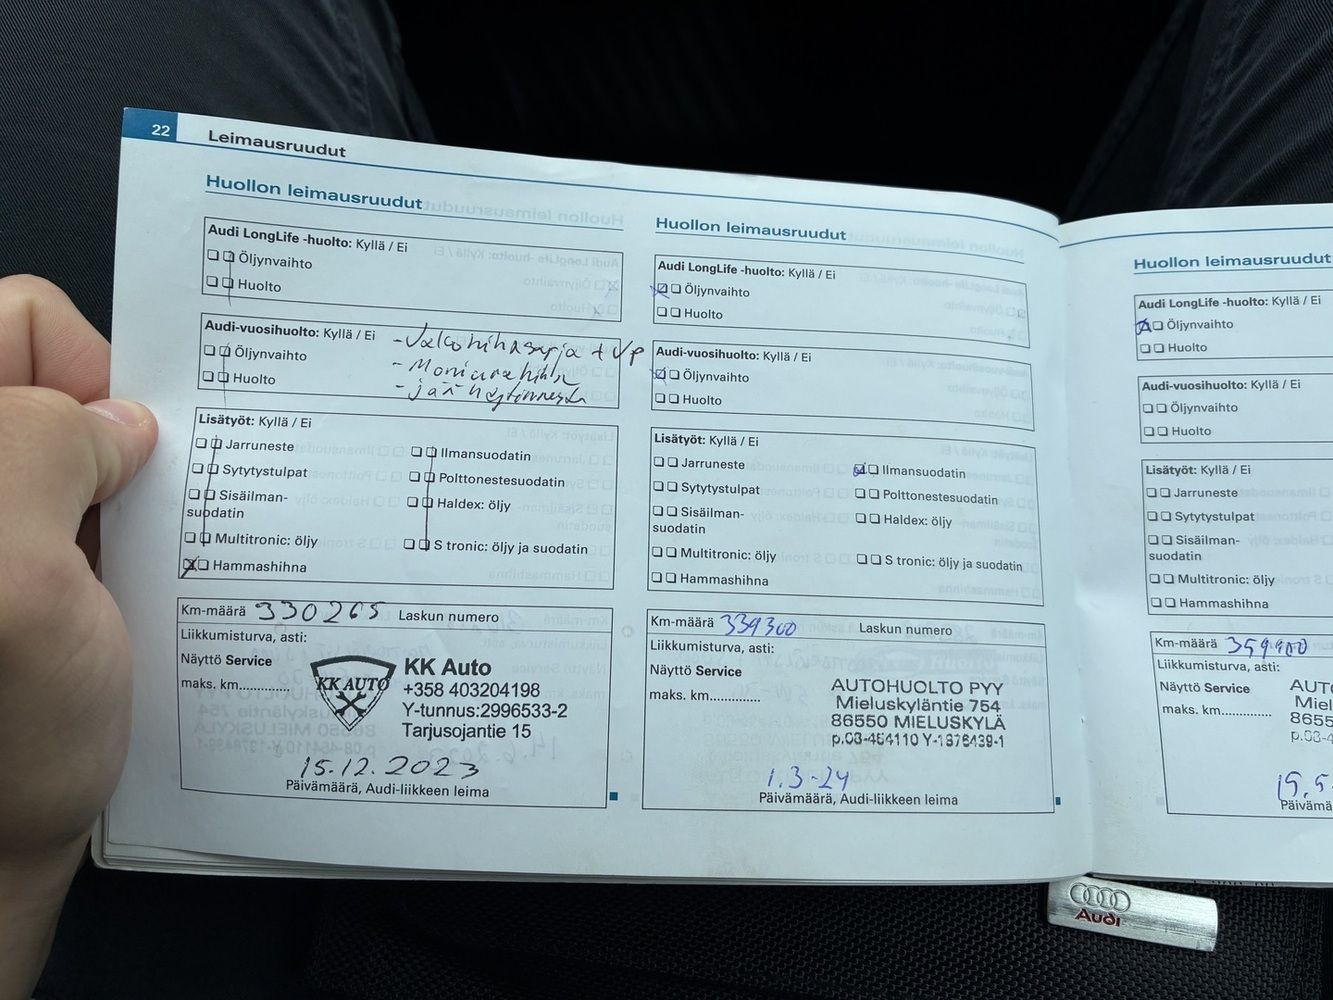 22 Leimausruudut
Huollon leimausruudut
Audi LongLife -huolto: Kyllä / Ei
Öljynvaihto
Huolto
Audi-vuosihuolto: Kyllä / Ei
Öljynvaihto
Huolto
- Jakohihnasarja + Vp
- Moniurahihna
- jää höytinnesta
Lisätyöt: Kyllä / Ei
Jarruneste
Ilmansuodatin
Sytytystulpat
Polttonestesuodatin
Sisäilman-
suodatin
Haldex: öljy
Multitronic: öljy
S tronic: öljy ja suodatin
Hammashihna
Km-määrä 330265 Laskun numero
Liikkumisturva, asti:
Näyttö Service
maks. km.............
KK AUTO
KK Auto
+358 403204198
Y-tunnus:2996533-2
Tarjusojantie 15
15.12.2023
Päivämäärä, Audi-liikkeen leima
Huollon leimausruudut
Audi LongLife -huolto: Kyllä / Ei
Öljynvaihto
Huolto
Audi-vuosihuolto: Kyllä / Ei
Öljynvaihto
Huolto
Lisätyöt: Kyllä / Ei
Jarruneste
Ilmansuodatin
Sytytystulpat
Polttonestesuodatin
Sisäilman-
suodatin
Haldex: öljy
Multitronic: öljy
S tronic: öljy ja suodatin
Hammashihna
Km-määrä 339300 Laskun numero
Liikkumisturva, asti:
Näyttö Service
maks. km.............
AUTOHUOLTO PYY
Mieluskyläntie 754
86550 MIELUSKYLÄ
p.08-464110 Y-1876439-1
1.3-24
Päivämäärä, Audi-liikkeen leima
Huollon leimausruudut
Audi LongLife -huolto: Kyllä / Ei
Öljynvaihto
Huolto
Audi-vuosihuolto: Kyllä / Ei
Öljynvaihto
Huolto
Lisätyöt: Kyllä / Ei
Jarruneste
Sytytystulpat
Sisäilman-
suodatin
Multitronic: öljy
Hammashihna
Km-määrä
Liikkumisturva, asti:
Näyttö Service
maks. km.............
AUT
Miel
8655
p.08-4
15.5
Päivämä
Audi